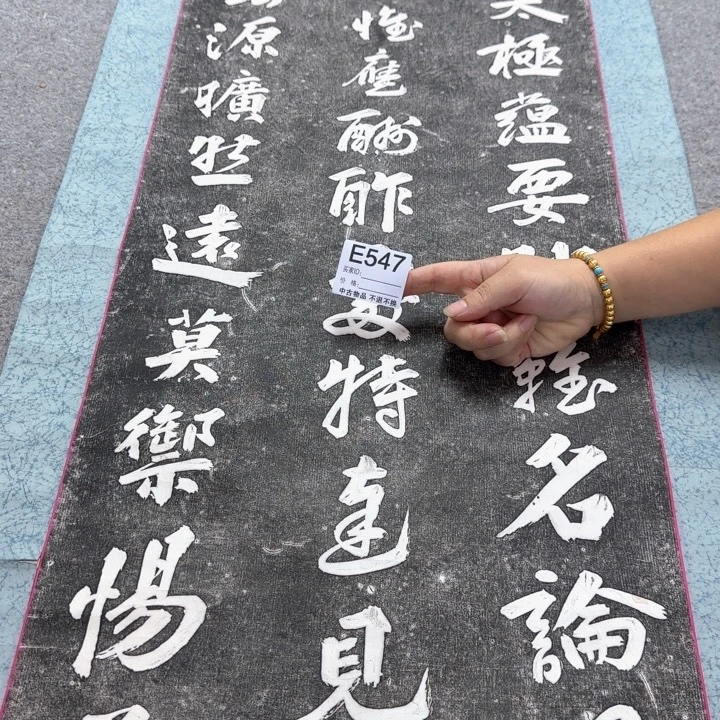 太極蘊要難名論
惟應酬酢特達見
源曠然遠莫禦惕
E547
买家ID:
价格:
中古物品 不退不换